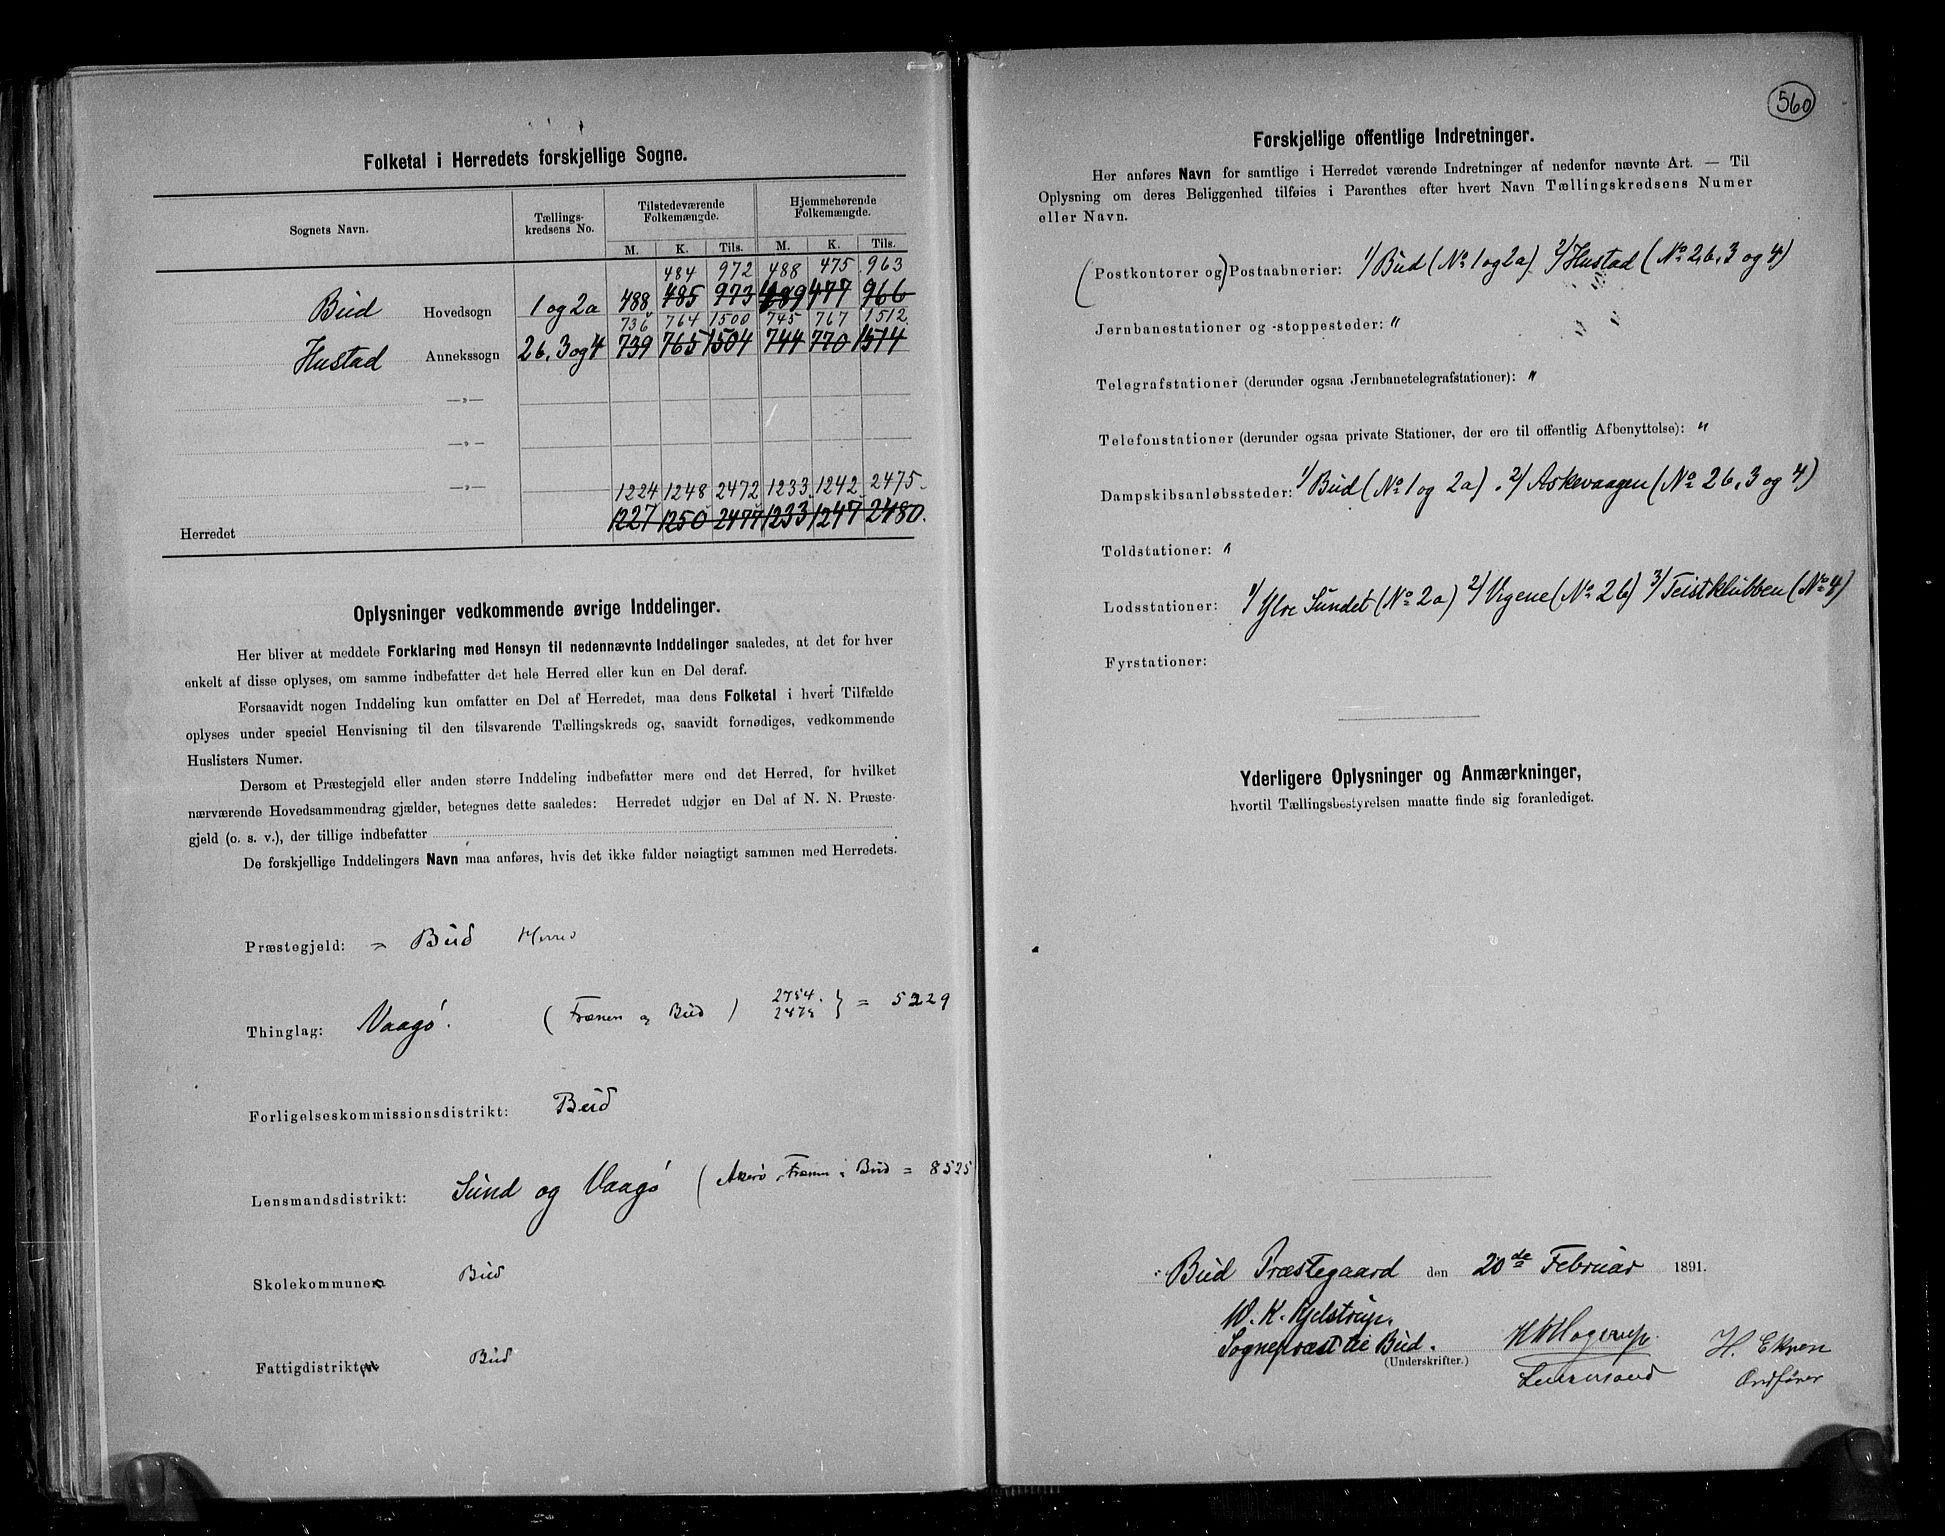 Folketal i Herredets forskjellige Sogne.
Sognets Navn. Tællings-kredsens No. Tilstedeværende Folkemængde. Hjemmehørende Folkemængde.
M. K. Tils. M. K. Tils.
484 972 488 475 963
Bud Hovedsogn 1 og 2a 488 485 973 489 477 966
736 764 1500 745 767 1512
Hustad Annekssogn 2b, 3 og 4 739 765 1504 744 770 1514
—„—
—„—
—„— 1224 1248 2472 1233 1242 2475
Herredet 1227 1250 2477 1233 1247 2480.
Oplysninger vedkommende øvrige Inddelinger.
Her bliver at meddele Forklaring med Hensyn til nedennævnte Inddelinger saaledes, at det for hver
enkelt af disse oplyses, om samme indbefatter det hele Herred eller kun en Del deraf.
Forsaavidt nogen Inddeling kun omfatter en Del af Herredet, maa dens Folketal i hvert Tilfælde
oplyses under speciel Henvisning til den tilsvarende Tællingskreds og, saavidt fornødiges, vedkommende
Huslisters Numer.
Dersom et Præstegjeld eller anden større Inddeling indbefatter mere end det Herred, for hvilket
nærværende Hovedsammendrag gjælder, betegnes dette saaledes: Herredet udgjør en Del af N. N. Præste-
gjeld (o. s. v.), der tillige indbefatter
De forskjellige Inddelingers Navn maa anføres, hvis det ikke falder nøiagtigt sammen med Herredets.
Præstegjeld: = Bud Herred
Thinglag: Vaagö. (Frænen og Bud) 2754 2475 } = 5229
Forligelseskommissionsdistrikt: Bud
Lensmandsdistrikt: Sund og Vaagö (Akerö, Frænen & Bud = 8525
Skolekommuner Bud
Fattigdistrikter Bud
560
Forskjellige offentlige Indretninger.
Her anføres Navn for samtlige i Herredet værende Indretninger af nedenfor nævnte Art. — Til
Oplysning om deres Beliggenhed tilføies i Parenthes efter hvert Navn Tællingskredsens Numer
eller Navn.
(Postkontorer og) Postaabnerier: 1/ Bud (No 1 og 2a) 2/ Hustad (No 2b, 3 og 4)
Jernbanestationer og -stoppesteder: "
Telegrafstationer (derunder ogsaa Jernbanetelegrafstationer): "
Telefonstationer (derunder ogsaa private Stationer, der ere til offentlig Afbenyttelse): "
Dampskibsanløbssteder: 1/ Bud (No 1 og 2a). 2/ Askevaagen (No 2b, 3 og 4)
Toldstationer: "
Lodsstationer: 1/ Ytre Sundet (No 2a) 2/ Vigene (No 2b) 3/ Teistklubben (No 4)
Fyrstationer:
Yderligere Oplysninger og Anmærkninger,
hvortil Tællingsbestyrelsen maatte finde sig foranlediget.
Bud Præstegaard den 20de Februar 1891.
W. K. Kjelstrup, Hagerup. H. Ekren
Sognepræst til Bud. Lensmand Ordfører
(Underskrifter.)